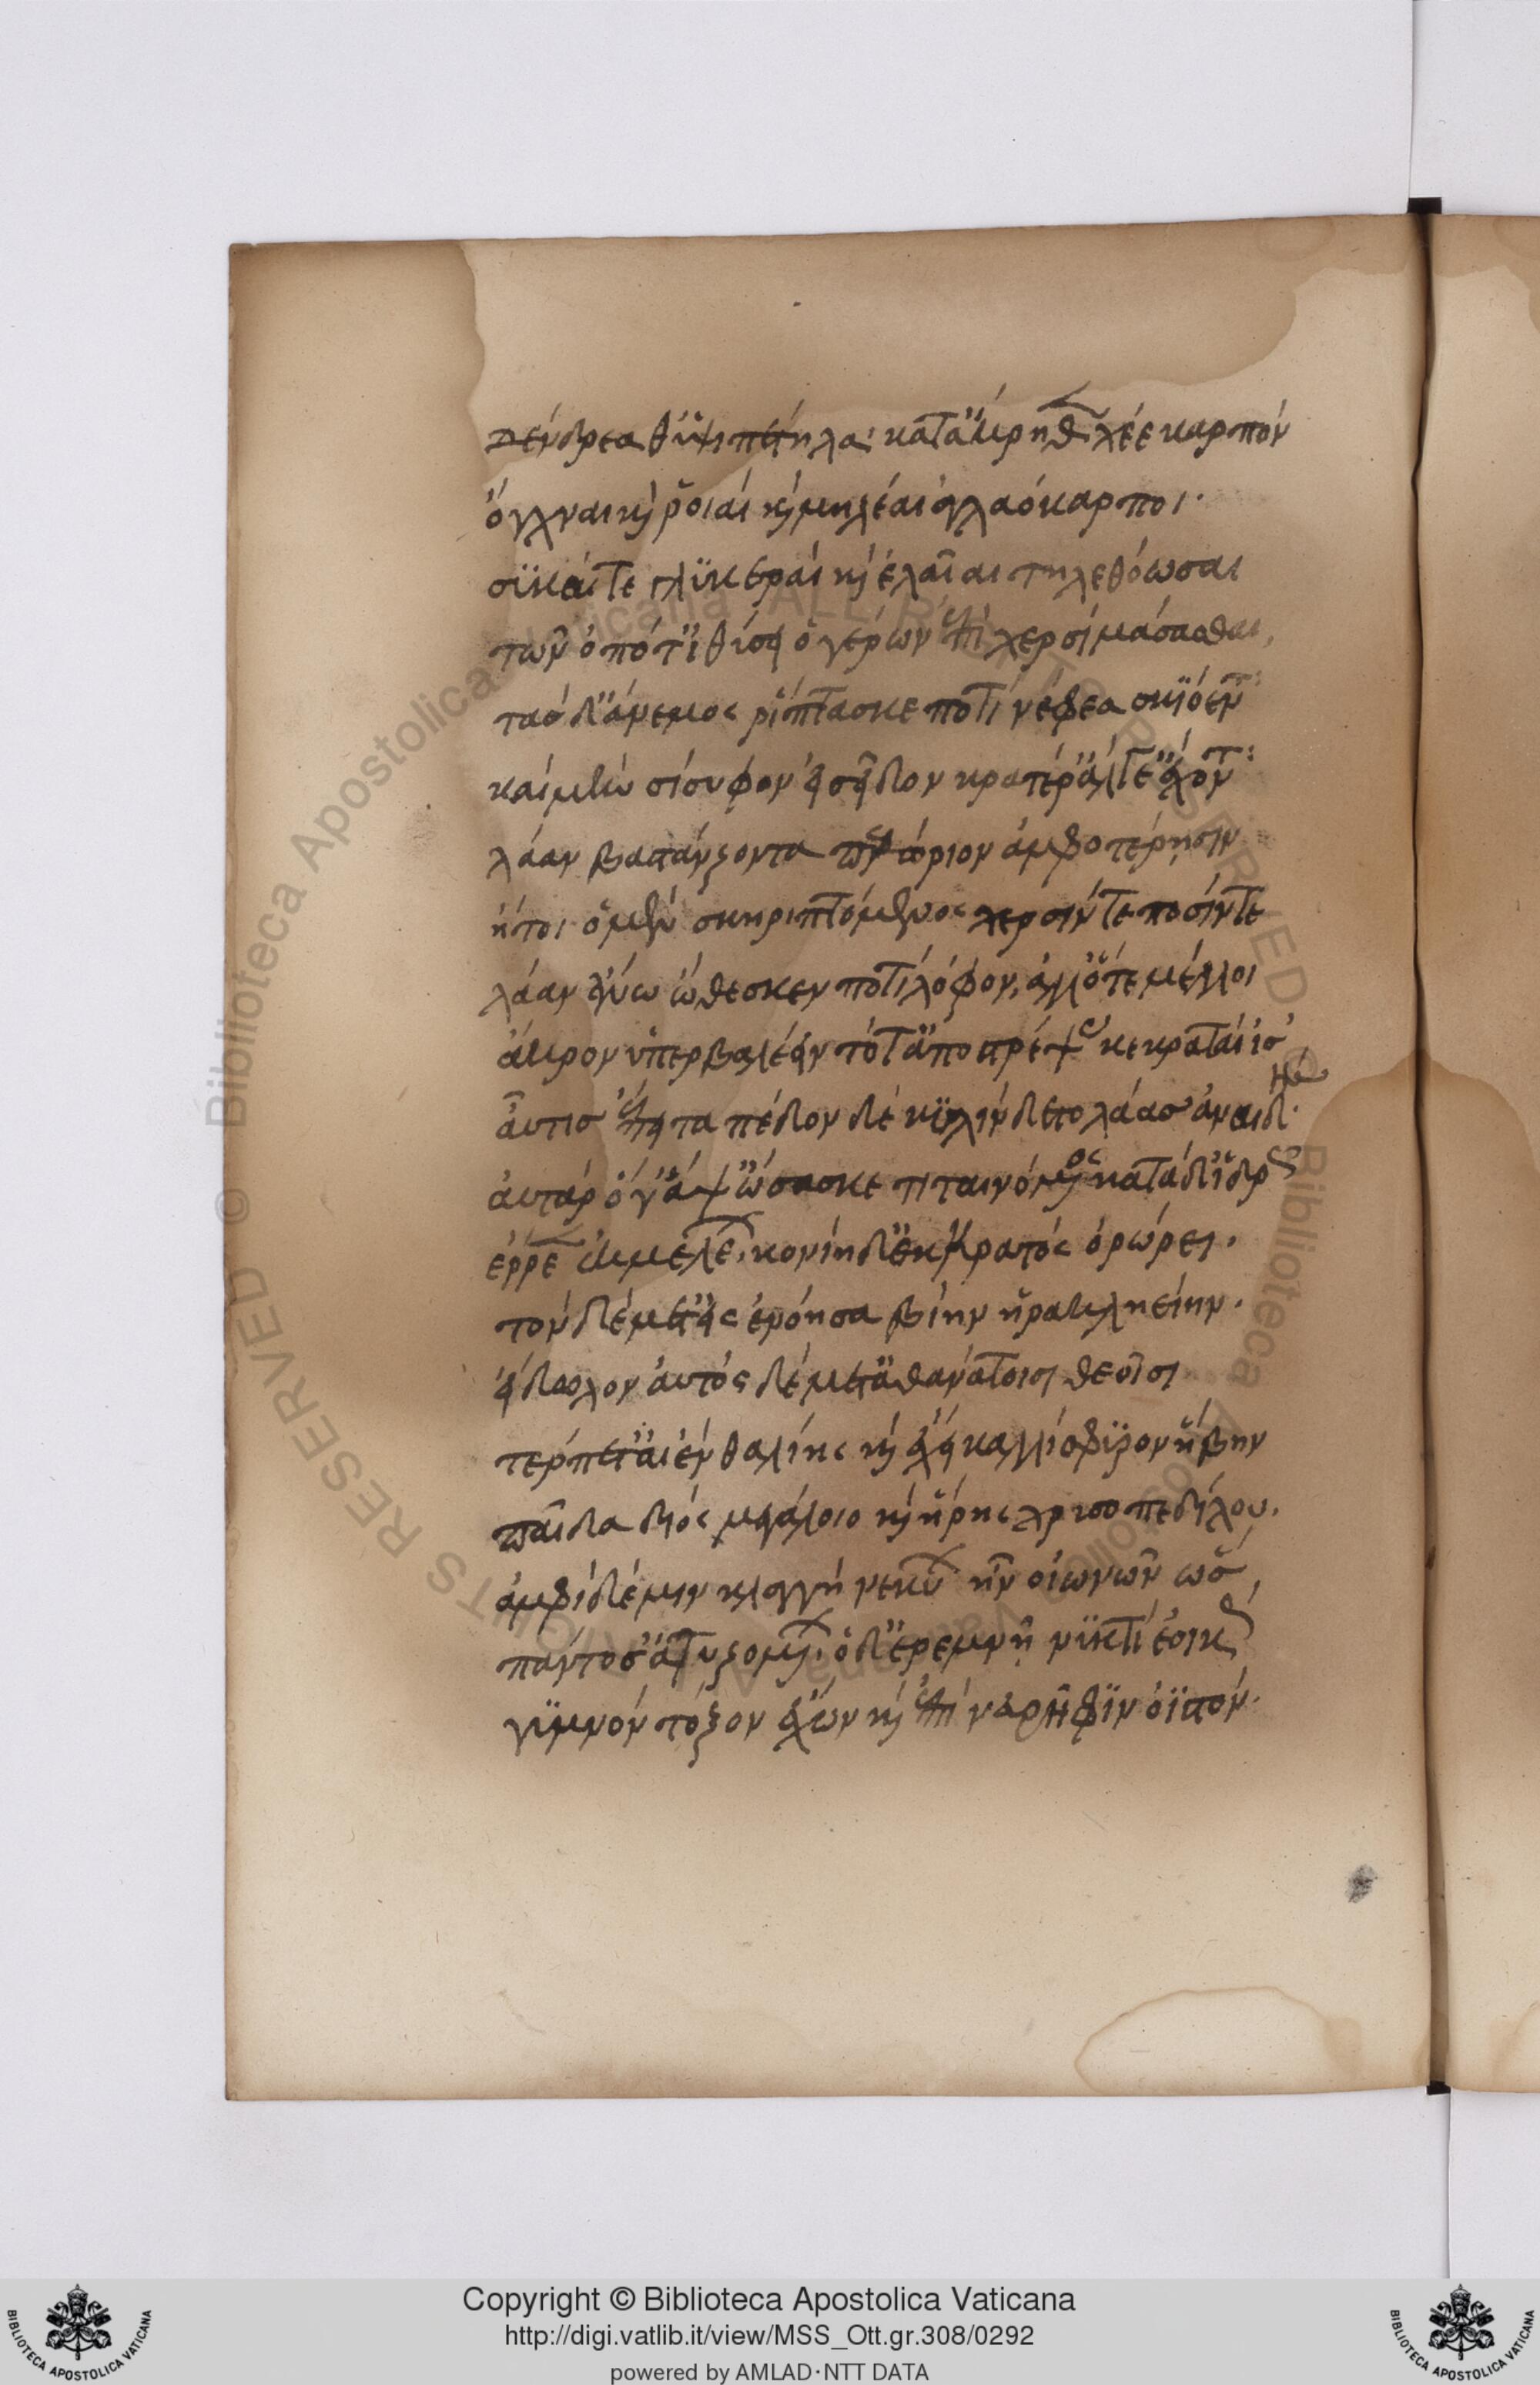 δένδρεα θ' ὑψιπέτηλα· κατάκρηθεν χέε καρπόν
ὄγχναι καὶ ῥοιαί καὶ μηλέαι ἀγλαόκαρποι·
συκαί τε γλυκεραί καὶ ἐλαῖαι τηλεθόωσαι
τῶν ὁπότ' ἰθύσει ὁ γέρων ἐπὶ χερσὶ μάσασθαι,
τὰσ δ' ἄνεμος ῥίπτασκε ποτὶ νέφεα σκιόεντα·
καὶ μὴν σίσυφον εἰσεῖδον κρατέρ' ἄλγε' ἔχοντα·
λᾶαν βαστάζοντα πελώριον ἀμφοτέρησιν
ἤτοι ὁ μὲν σκηριπτόμενος χερσίν τε ποσίν τε
λᾶαν ἄνω ὤθεσκεν ποτὶ λόφον, ἀλλ' ὅτε μέλλοι
ἄκρον ὑπερβαλέειν τότ' ἀποστρέψασκε κραταιίσ
αὖτισ ἔπειτα πέδον δὲ κυλίνδετο λᾶασ ἀναιδής·
αὐτὰρ ὅ γ' ἂψ ὤσασκε τιταινόμενος κατὰ δ' ἱδρὼς
ἔρρεεν ἐκ μελέων, κονίη δ' ἐκ κρατός ὀρώρει.
τὸν δὲ μετ' εἰς ἐνόησα βίην ἡρακληείην.
εἴδωλον αὐτὸς δὲ μετ' ἀθανάτοισι θεοῖσι
τέρπεται ἐν θαλίης καὶ ἔχει καλλίσφυρον ἥβην
παῖδα διός μεγάλοιο καὶ ἥρης χρυσοπεδίλου.
ἀμφὶ δέ μιν κλαγγὴ νεκύων ἦν οἰωνῶν ὥσ,
πάντοσ' ἀτυζομένων· ὁ δ' ἐρεμνῇ νυκτὶ ἐοικώς
γυμνὸν τόξον ἔχων καὶ ἐπὶ νευρῆφιν ὀϊστόν.
Copyright © Biblioteca Apostolica Vaticana
http://digi.vatlib.it/view/MSS_Ott.gr.308/0292
powered by AMLAD·NTT DATA